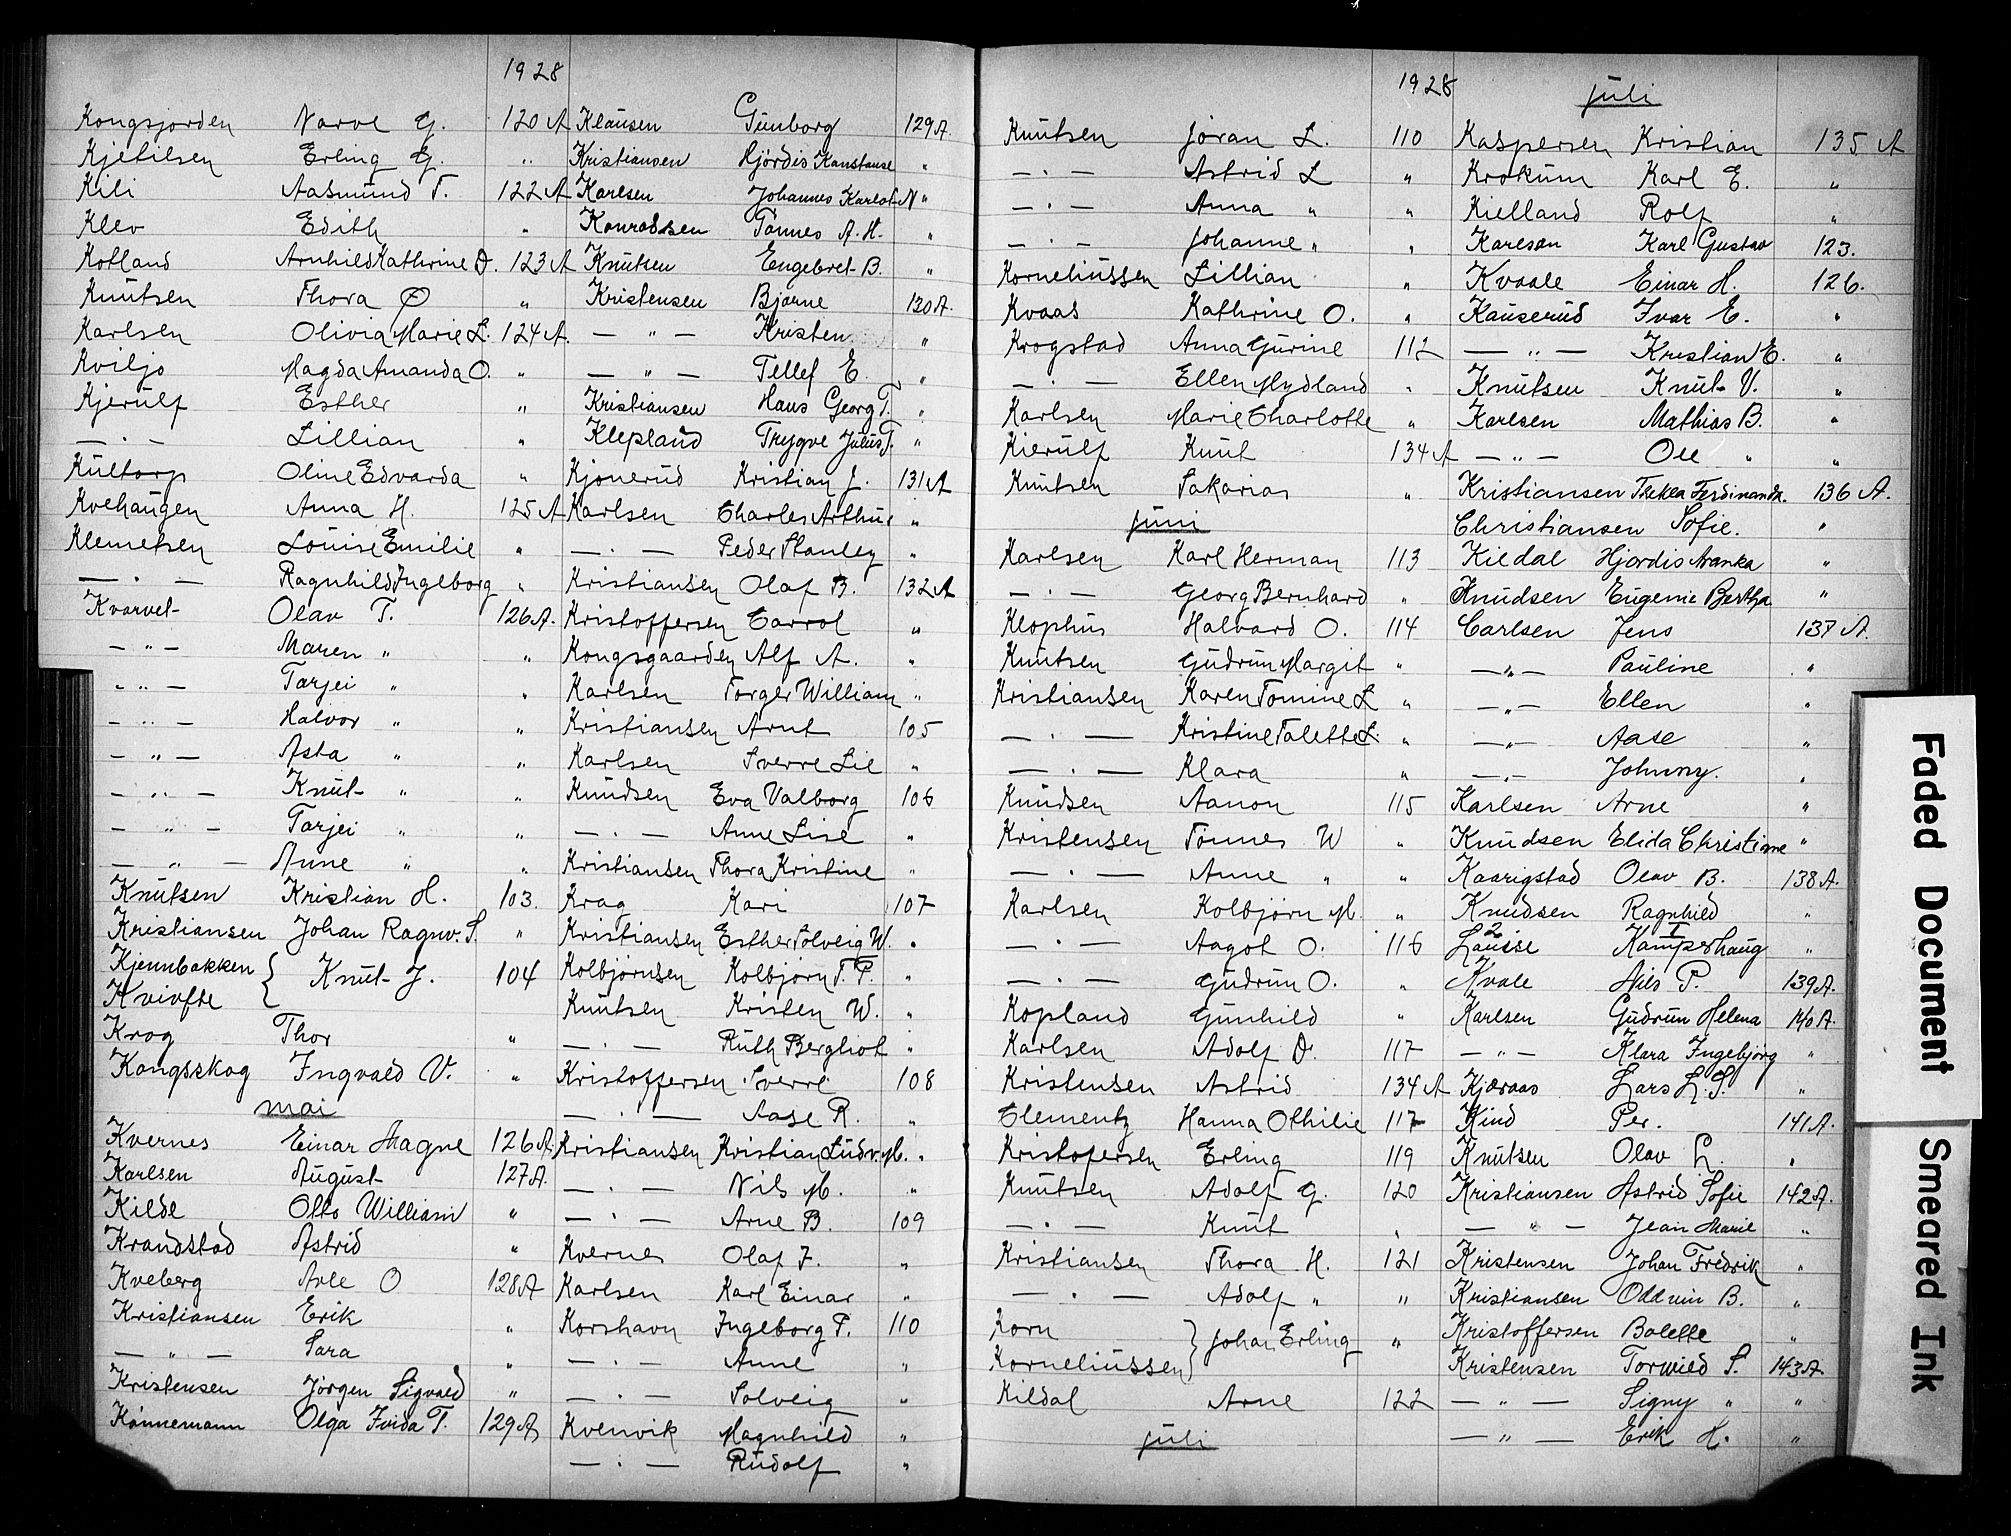 1928
Kongsjorden Narve G. 120 A
Kjetilsen Erling G. "
Kili Aasmund T. 122 A
Klev Edith "
Kotland Arnhild Kathrine D. 123 A
Knutsen Thora Ø "
Karlsen Olivia Marie L. 124 A.
Kviljo Magda Amanda O. "
Kjerulf Esther "
— " — Lillian "
Kultorp Oline Edvarda "
Kvehaugen Anna H. 125 A
Klemetsen Louise Emilie "
— " — Ragnhild Ingeborg "
Kvarvet Olav T. 126 A.
— " — Maren " "
— " — Tarjei " "
— " — Halvor " "
— " — Asta " "
— " — Knut " "
— " — Tarjei " "
— " — Anne " "
Knutsen Kristian H. 103.
Kristiansen Johan Ragnv. S. "
Kjennbakken } Knut J. 104
Kvivfte
Krog Thor "
Kongsskog Ingvald V. "
mai
Kvernes Einar Magne 126 A.
Karlsen August 127 A.
Kilde Otto William "
Krandstad Astrid "
Kveberg Avle O 128 A
Kristiansen Erik "
— " — Sara "
Kristensen Jörgen Sigvald "
Könnemann Olga Frida T. 129 A
Klausen Gunborg 129 A.
Kristiansen Hjördis Kanstanse "
Karlsen Johannes Karlot N "
Konradsen Tönnes A. H. "
Knutsen Engebret B. "
Kristensen Bjarne 130 A.
— " — Kristen "
— " — Tellef E. "
Kristiansen Hans Georg T. "
Klepland Trygve Julius T. "
Kjönerud Kristian J. 131 A
Karlsen Charles Arthur "
— " — Peder Stanley "
Kristiansen Olaf B. 132 A
Kristoffersen Carrol "
Kongsgaarden Alf A. "
Karlsen Torger William "
Kristiansen Arnt 105
Karlsen Sverre Lie "
Knudsen Eva Valborg 106
— " — Anne Lise "
Kristiansen Thora Kristine "
Krag Kari 107
Kristiansen Esther Solveig W. "
Kolbjörnsen Kolbjörn T. P. "
Knutsen Kristen W. "
— " — Ruth Bergliot "
Kristoffersen Sverre 108
— " — Aase R. "
Kristiansen Kristian Ludv. M. "
— " — Nils M. "
— " — Arne B. 109
Kvernes Olaf J. "
Karlsen Karl Einar "
Korshavn Ingeborg P. 110
— " — Anne "
— " — Solveig "
Kvenvik Magnhild "
— " — Rudolf "
1928
Knutsen Jöran L. 110
— " — Astrid L "
— " — Anna " "
— " — Johanne " "
Korneliussen Lillian "
Kvaas Kathrine O. "
Krogstad Anna Gurine 112
— " — Ellen Mydland "
Karlsen Marie Charlotte "
Kierulf Knut 134 A
Knutsen Sakarias "
juni
Karlsen Karl Herman 113
— " — Georg Bernhard "
Klophus Halvard O. 114
Knutsen Gudrun Margit "
Kristiansen Karen Tomine L "
— " — Kristine Talette L. "
— " — Klara "
Knudsen Aanon 115
Kristensen Tönnes W "
— " — Anne " "
Karlsen Kolbjörn M. "
— " — Aagot O. 116
— " — Gudrun O. "
Kopland Gunhild "
Karlsen Adolf D. 117
Kristensen Astrid 134 A
Clementz Hanna Othilie 117
Kristofersen Erling 119
Knutsen Adolf G. 120
— " — Knut "
Kristiansen Thora H. 121
— " — Adolf " "
Korn } Johan Erling "
Korneliussen
Kildal Arne 122
juli
juli
Kaspersen Kristian 135 A
Krokum Karl E. "
Kielland Rolf "
Karlson Karl Gustav 123.
Kvaale Einar H. 126.
Kauserud Ivar E. "
— " — Kristian E. "
Knutsen Knut V. "
Karlsen Mathias B. "
— " — Ole " "
Kristiansen Thekla Ferdinanda 136 A.
Christiansen Sofie. "
Kildal Hjordis Aranka "
Knudsen Eugenie Bertha "
Carlsen Jens 137 A.
— " — Pauline "
— " — Ellen "
— " — Aase "
— " — Johnny. "
Karlsen Arne "
Knudsen Elida Christine "
Kaarigstad Olav B. 138 A.
Knudsen Ragnhild "
2 1
Lauise Kamperhaug "
Kvale Nils P. 139 A.
Karlsen Gudrun Helena 140 A.
— " — Klara Ingebjörg "
Kjæraas Lars L. S. "
Kind Per. 141 A.
Knutsen Olav L. "
Kristiansen Astrid Sofie 142 A.
— " — Jean Marie "
Kristensen Johan Fredrik "
Kristiansen Oddvin B. "
Kristoffersen Bolette "
Kristensen Torvild S. 143 A.
— " — Signy " "
— " — Erik H. "
Faded Document
Smeared Ink